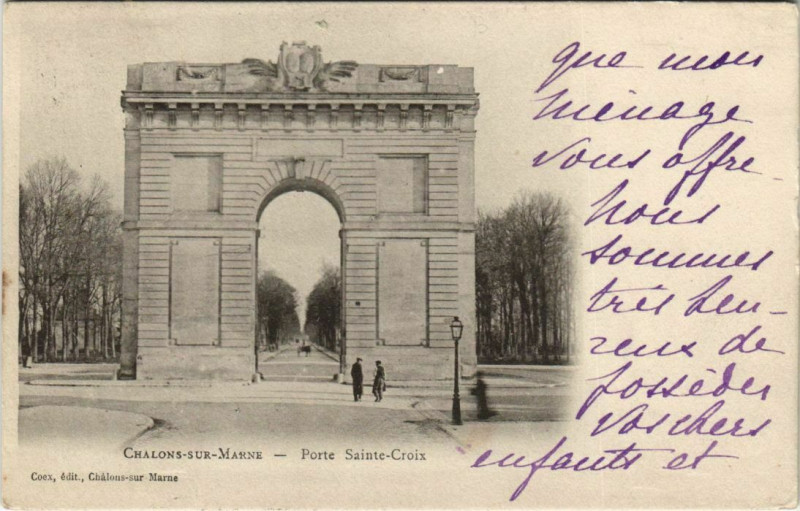 que mon
ménage
vous offre
Nous
sommes
très heu-
reux de
posséder
vos chers
enfants et
CHALONS-SUR-MARNE — Porte Sainte-Croix
Coex, édit., Châlons-sur Marne